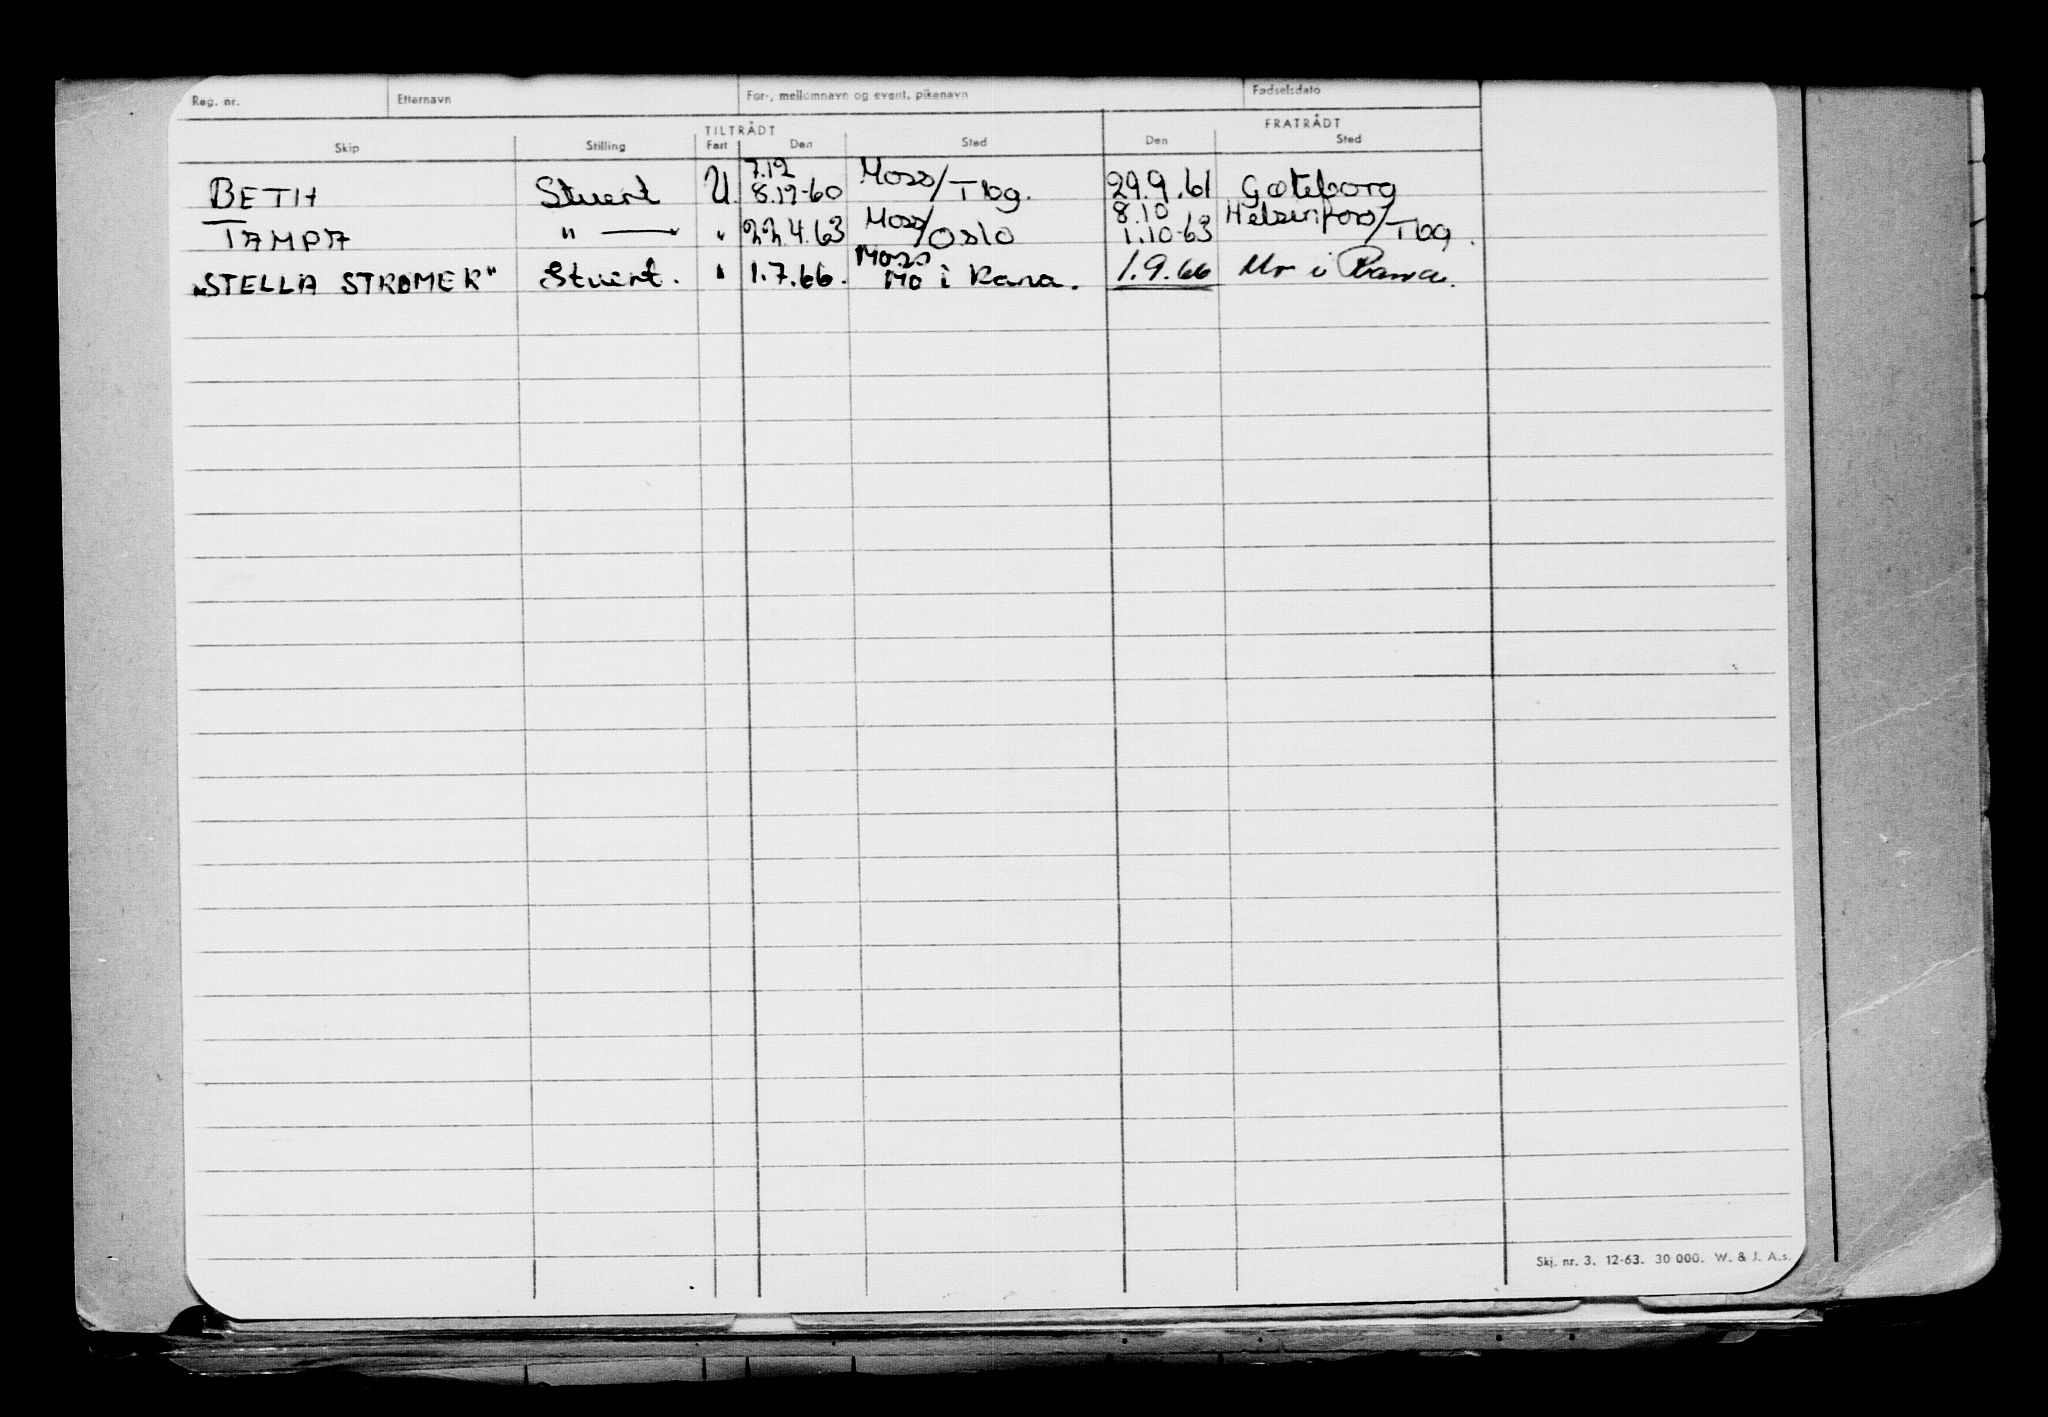 Reg. nr. Etternavn For-, mellomnavn og event. pikenavn Fødselsdato
TILTRÅDT FRATRÅDT
Skip Stilling Fart Den Sted Den Sted
BETH Stuert U. 7.12 8.12-60 Moss/Tbg. 29.9.61 Gøteborg
TAMPA " — " 22.4.63 Moss/Oslo 8.10 1.10-63 Helsinfors/Tbg.
"STELLA STRØMER" Stuert. " 1.7.66. Moss Mo i Rana. 1.9.66 Mo i Rana.
Skj. nr. 3. 12-63. 30 000. W. & J. A.s.